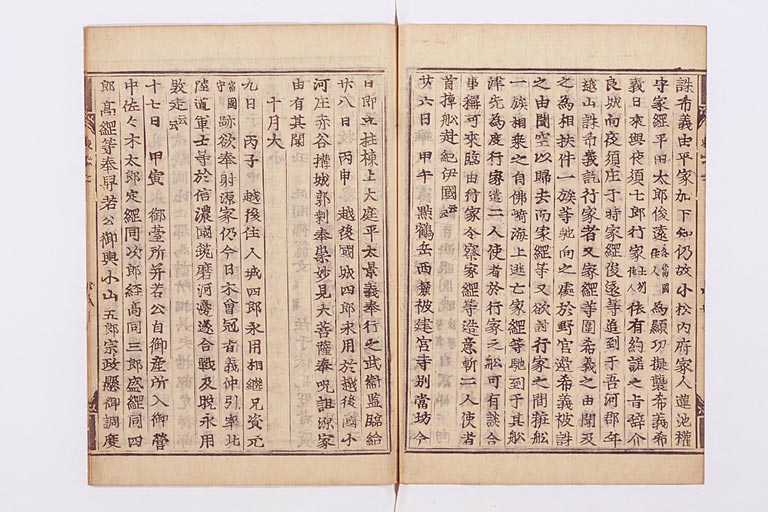 誅希義由平家加下知仍故小松内府家人蓮池權
守家經平田太郎俊遠各當國住人為顯功擬襲希義希
義日来與夜須七郎行家土州住人依有約諾之旨辞介
良城向夜須庄于時家經俊遠等追到于吾河郡年
越山誅希義訖行家者又家經等圍希義之由聞及
之為相扶件一族等馳向之處於野宮邊希義被誅
之由聞空以歸去而家經等又欲討行家之間粧舩
一族相乗之自佛崎海上逃亡家經等馳到于其舩
津先為度行家遣二人使者於行家之舩可有談合
事稱可来臨由行家令察家經等造意斬二人使者
首掉舩赴紀伊國云云
廿六日 甲午 點鶴岳西麓被建宮寺別當坊今
日即立柱棟上大庭平太景義奉行之武衛監臨給
廿八日 丙申 越後國城四郎永用於越後國小
河庄赤谷搆城郭剰奉崇妙見大菩薩奉呪詛源家
由有其聞
十月大
九日 丙子 越後住人城四郎永用相継兄資元
當國守跡欲奉射源家仍今日木曾冠者義仲引率北
陸道軍士等於信濃國筑磨河邊遂合戰及晩永用
敗走云云
十七日 甲寅 御臺所并若公自御産所入御營
中佐々木太郎定經同次郎經高同三郎盛經同四
郎髙經等奉舁若公御輿小山五郎宗政懸御調度